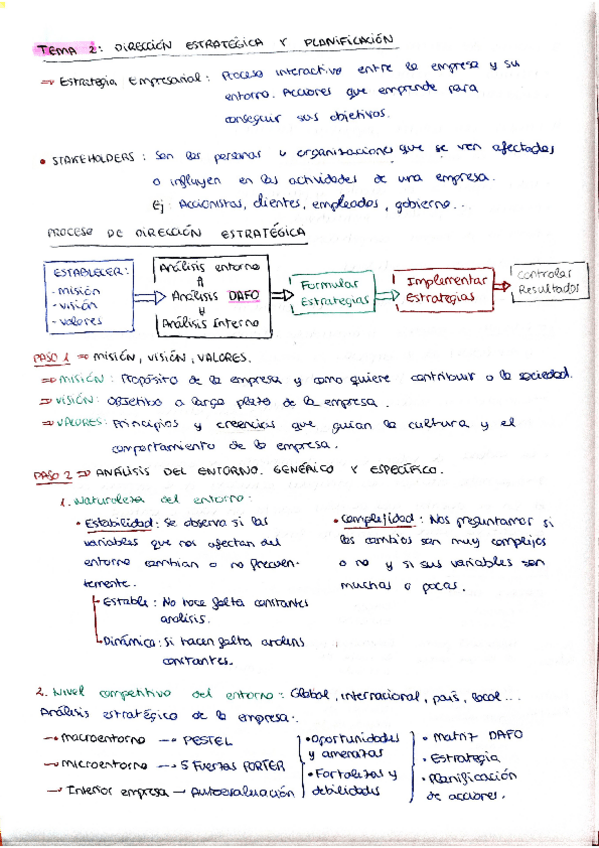 TEMA 2: DIRECCIÓN ESTRATÉGICA Y PLANIFICACIÓN
⇒ Estrategia Empresarial: Proceso interactivo entre la empresa y su
entorno. Acciones que emprende para
conseguir sus objetivos.
• STAKEHOLDERS: Son las personas u organizaciones que se ven afectadas
o influyen en las actividades de una empresa.
Ej: Accionistas, clientes, empleados, gobierno...
PROCESO DE DIRECCIÓN ESTRATÉGICA
ESTABLECER:
- misión
- visión
- valores
Análisis entorno
Análisis DAFO
Análisis Interno
Formular
Estrategias
Implementar
Estrategias
Controlar
Resultados
PASO 1 ⇒ MISIÓN, VISIÓN, VALORES.
⇒ MISIÓN: Propósito de la empresa y como quiere contribuir a la sociedad.
⇒ VISIÓN: Objetivo a largo plazo de la empresa.
⇒ VALORES: Principios y creencias que guian la cultura y el
comportamiento de la empresa.
PASO 2 ⇒ ANÁLISIS DEL ENTORNO. GENÉRICO Y ESPECÍFICO.
1. Naturaleza del entorno:
• Estabilidad: Se observa si las
variables que nos afectan del
entorno cambian o no frecuen-
temente.
Estable: No hace falta constantes
analisis.
Dinámica: Si hacen falta
constantes.
• Complejidad: Nos preguntamos si
los cambios son muy complejos
o no y si sus variables son
muchas o pocas.
2. Nivel competitivo del entorno: Global, internacional, país, local...
Análisis estratégico de la empresa:
→ Macroentorno → PESTEL
→ Microentorno → 5 Fuerzas PORTER
→ Interior empresa → Autoevaluación
• Oportunidades
y amenazas
• Fortalezas y
debilidades
• Matriz DAFO
• Estrategia
• Planificación
de acciones.